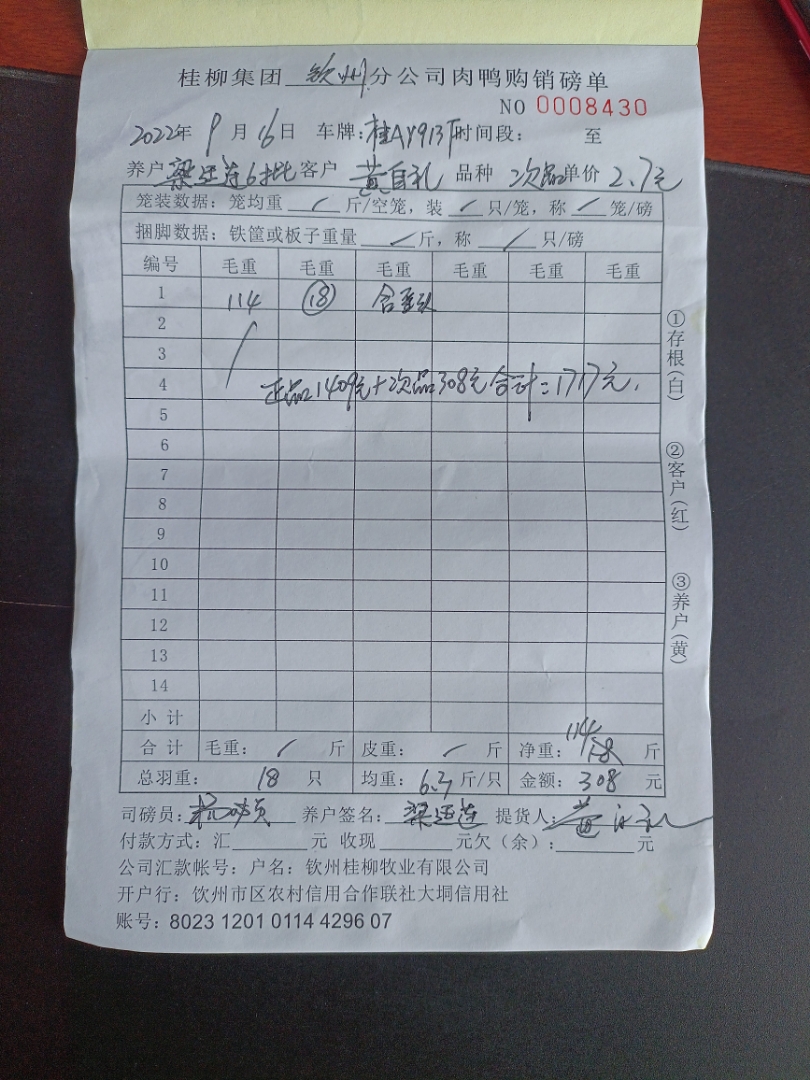 桂柳集团 钦州 分公司肉鸭购销磅单
NO 0008430
2022年 9月16日 车牌:桂AY913F 时间段: 至
养户 梁运莲6批 客户 黄自礼 品种 次品 单价 2.7元
笼装数据:笼均重 / 斤/空笼,装 / 只/笼,称 / 笼/磅
捆脚数据:铁筐或板子重量 / 斤,称 / 只/磅
编号 毛重 毛重 毛重 毛重 毛重 毛重
1 114 ⑱
2
3
4 正品1409元+次品308元合计=1717元.
5
6
7
8
9
10
11
12
13
14
小计
合计 毛重: / 斤 皮重: / 斤 净重: 114 斤
总羽重: 18 只 均重: 6.3 斤/只 金额: 308 元
司磅员: 养户签名: 梁运莲 提货人: 黄
付款方式:汇 元 收现 元欠(余): 元
公司汇款帐号:户名:钦州桂柳牧业有限公司
开户行:饮州市区农村信用合作联社大垌信用社
账号:8023 1201 0114 4296 07
①存根(白)
②客户(红)
③养户(黄)